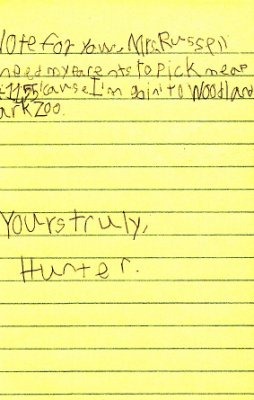 Note for you, Mrs. Russell
need my parents to pick me up
11:55 'cause I'm goin' to Woodland
ark Zoo.
Yours truly,
Hunter.